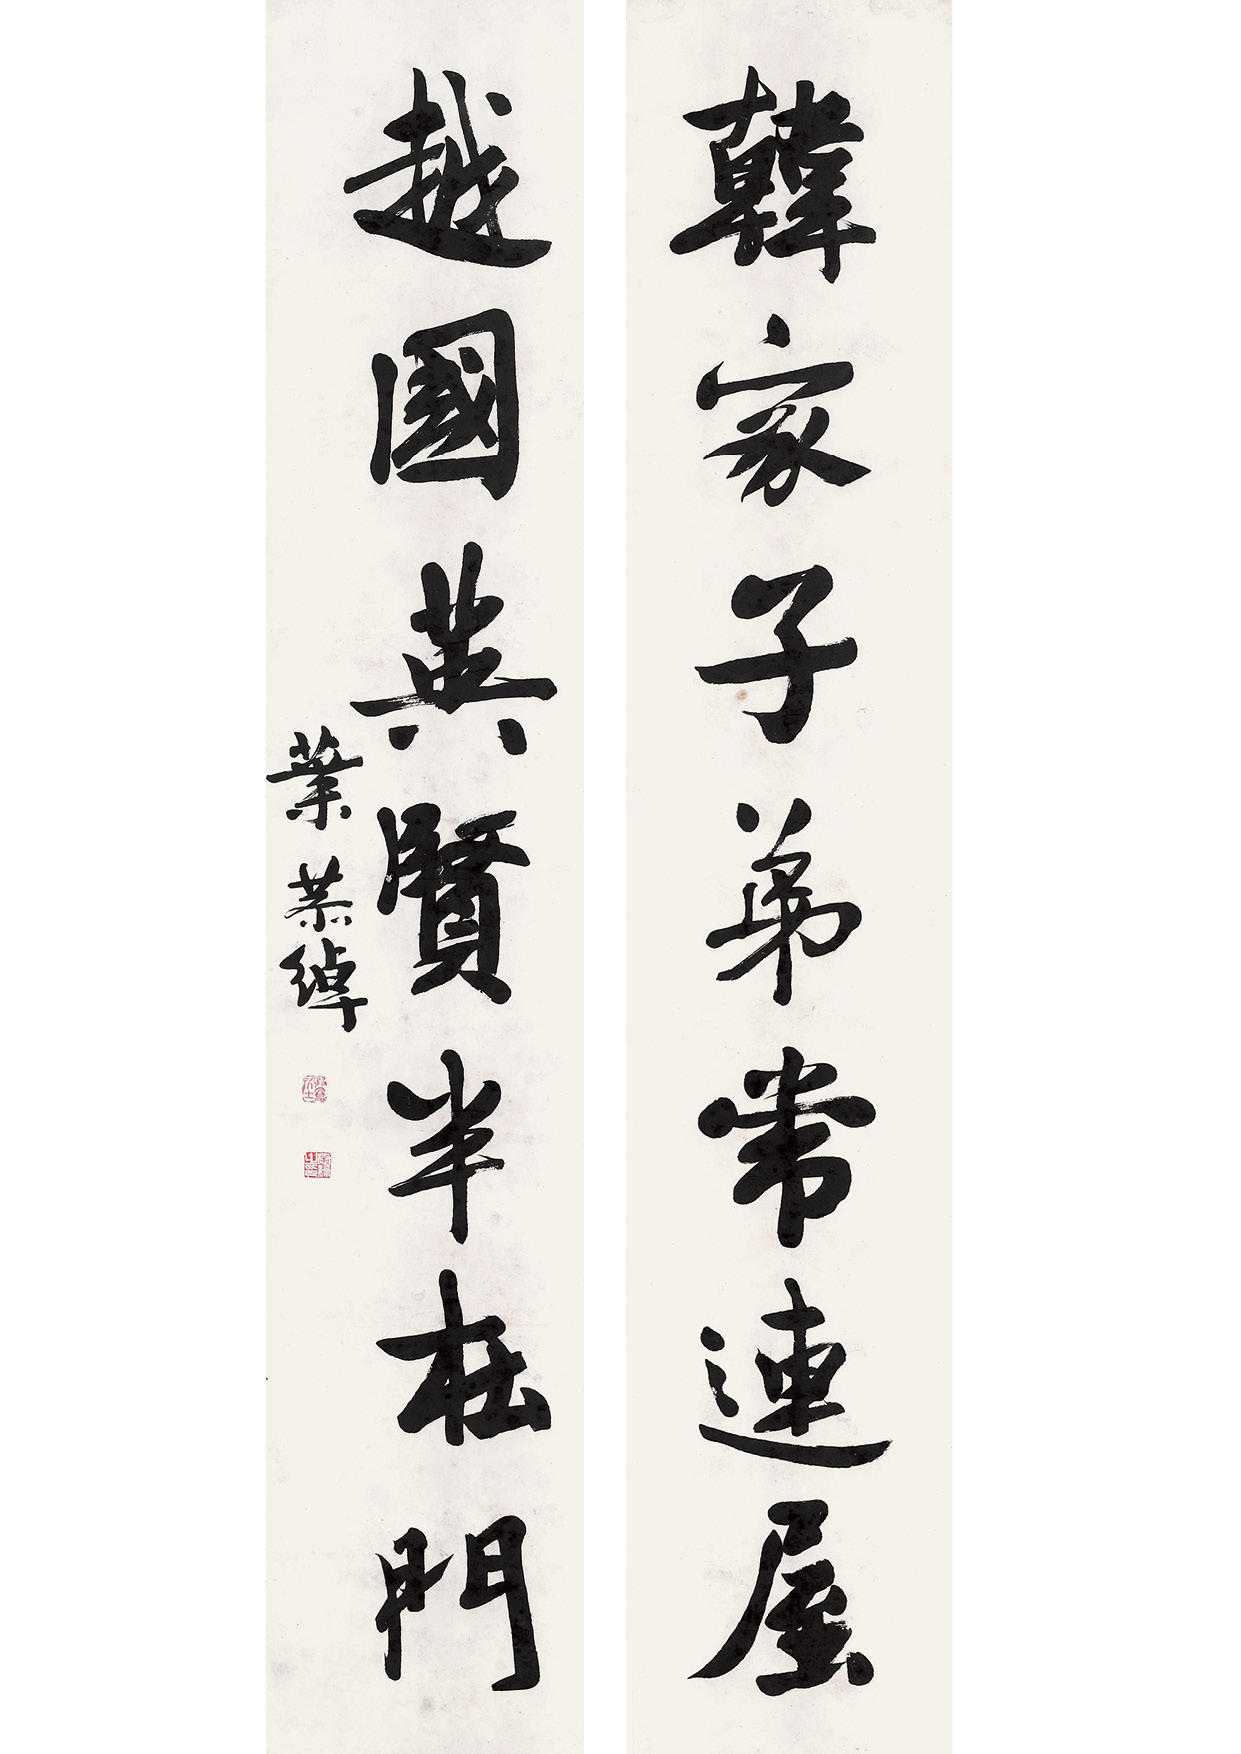 韓家子弟常連屋
越國英賢半在門
葉恭綽